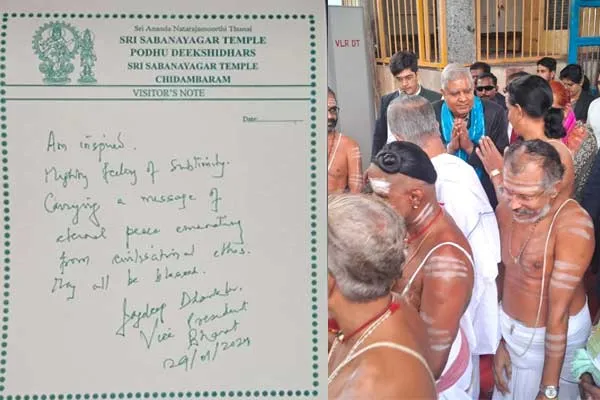 Sri Ananda Natarajamoorthi Thunai
SRI SABANAYAGAR TEMPLE
PODHU DEEKSHIDHARS
SRI SABANAYAGAR TEMPLE
CHIDAMBARAM
VISITOR'S NOTE
Date:
Am inspired.
Mighty feeling of sublimity.
Carrying a message of
eternal peace emanating
from civilisational ethos.
May all be blessed.
Jagdeep Dhankhar.
Vice President
Bharat
29/01/2024
VLR DT